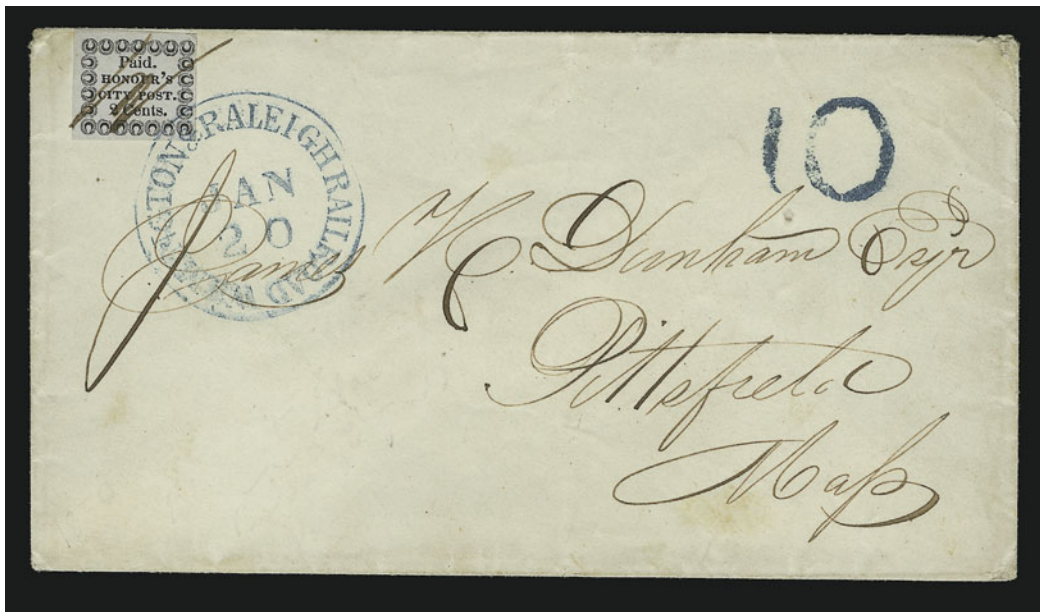 Paid.
HONOUR'S
CITY POST.
2 Cents.
WILMINGTON & RALEIGH RAILROAD
JAN
20
10
James H. Dunham Esqr
Pittsfield
Maſs